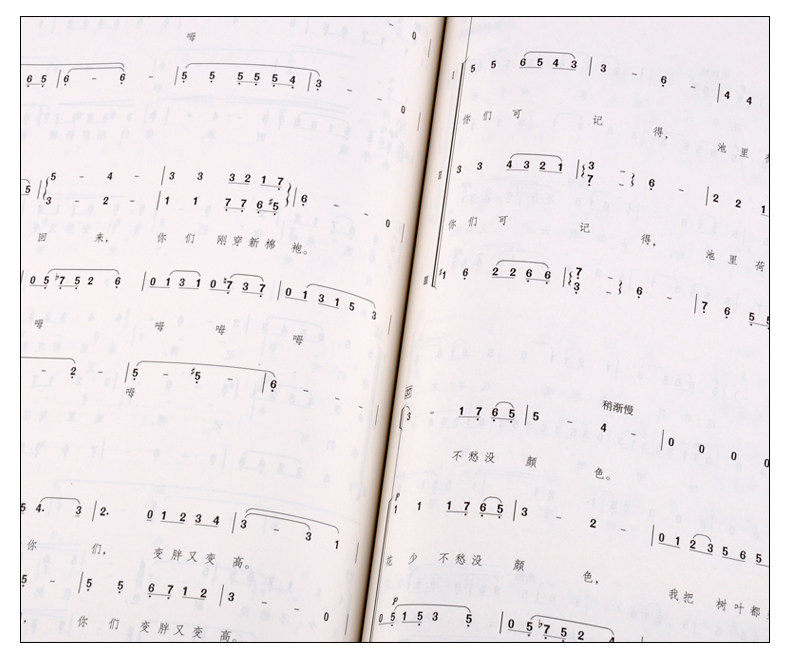 呣
6 5 | 6 - 6 - | 5 5 5 5 5 4 | 3 - - 0
5 - 4 - | 3 3 3 2 1 7 | 6 - - 0
3 - 2 - | 1 1 7 7 6 #5
回 来， 你 们 刚 穿 新 棉 袍。
0 5 b7 5 2 6 | 0 1 3 1 0 b7 3 7 | 0 1 3 1 5 3
呣 呣 呣 呣
- 2 - | 5 - #5 - | 6 - - -
呣
5 4. 3 | 2. 0 1 2 3 4 | 3 - 3 1
你 们， 变 胖 又 变 高。
5 - | 5 5 6 7 1 2 | 3 - - 0
， 你 们 变 胖 又 变 高。
I 5 5 6 5 4 3 | 3 - 6 - | 4 4
你 们 可 记 得， 池 里
II 3 3 4 3 2 1 | 3 - 6 - | 2 2 1
7
你 们 可 记 得， 池 里 荷
III #1 6 2 2 6 6 | 7 - 6 - | 7 6 5 5
3
稍渐慢
3 - 1 7 6 5 | 5 - 4 - | 0 0 0 0
不 愁 没 颜 色。
p
1 1 1 7 6 5 | 3 - 2 - | 0 1 2 3 5 6 5
花 少 不 愁 没 颜 色， 我 把 树 叶 都
p
0 5 1 5 3 5 | 0 5 b7 5 2 4